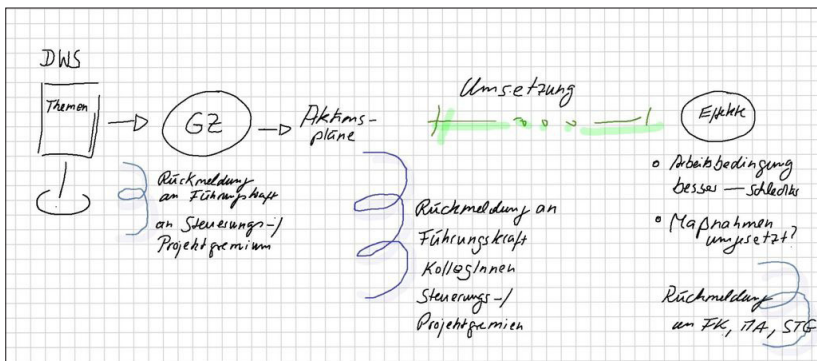 DWS
Themen
GZ
Aktions-
pläne
Umsetzung
Effekte
Rückmeldung
an Führungskraft
an Steuerungs-/
Projektgremium
Rückmeldung an
Führungskraft
KollegInnen
Steuerungs-/
Projektgremien
Arbeitsbedingung
besser — schlechter
Maßnahmen
umgesetzt?
Rückmeldung
an FK, MA, STG